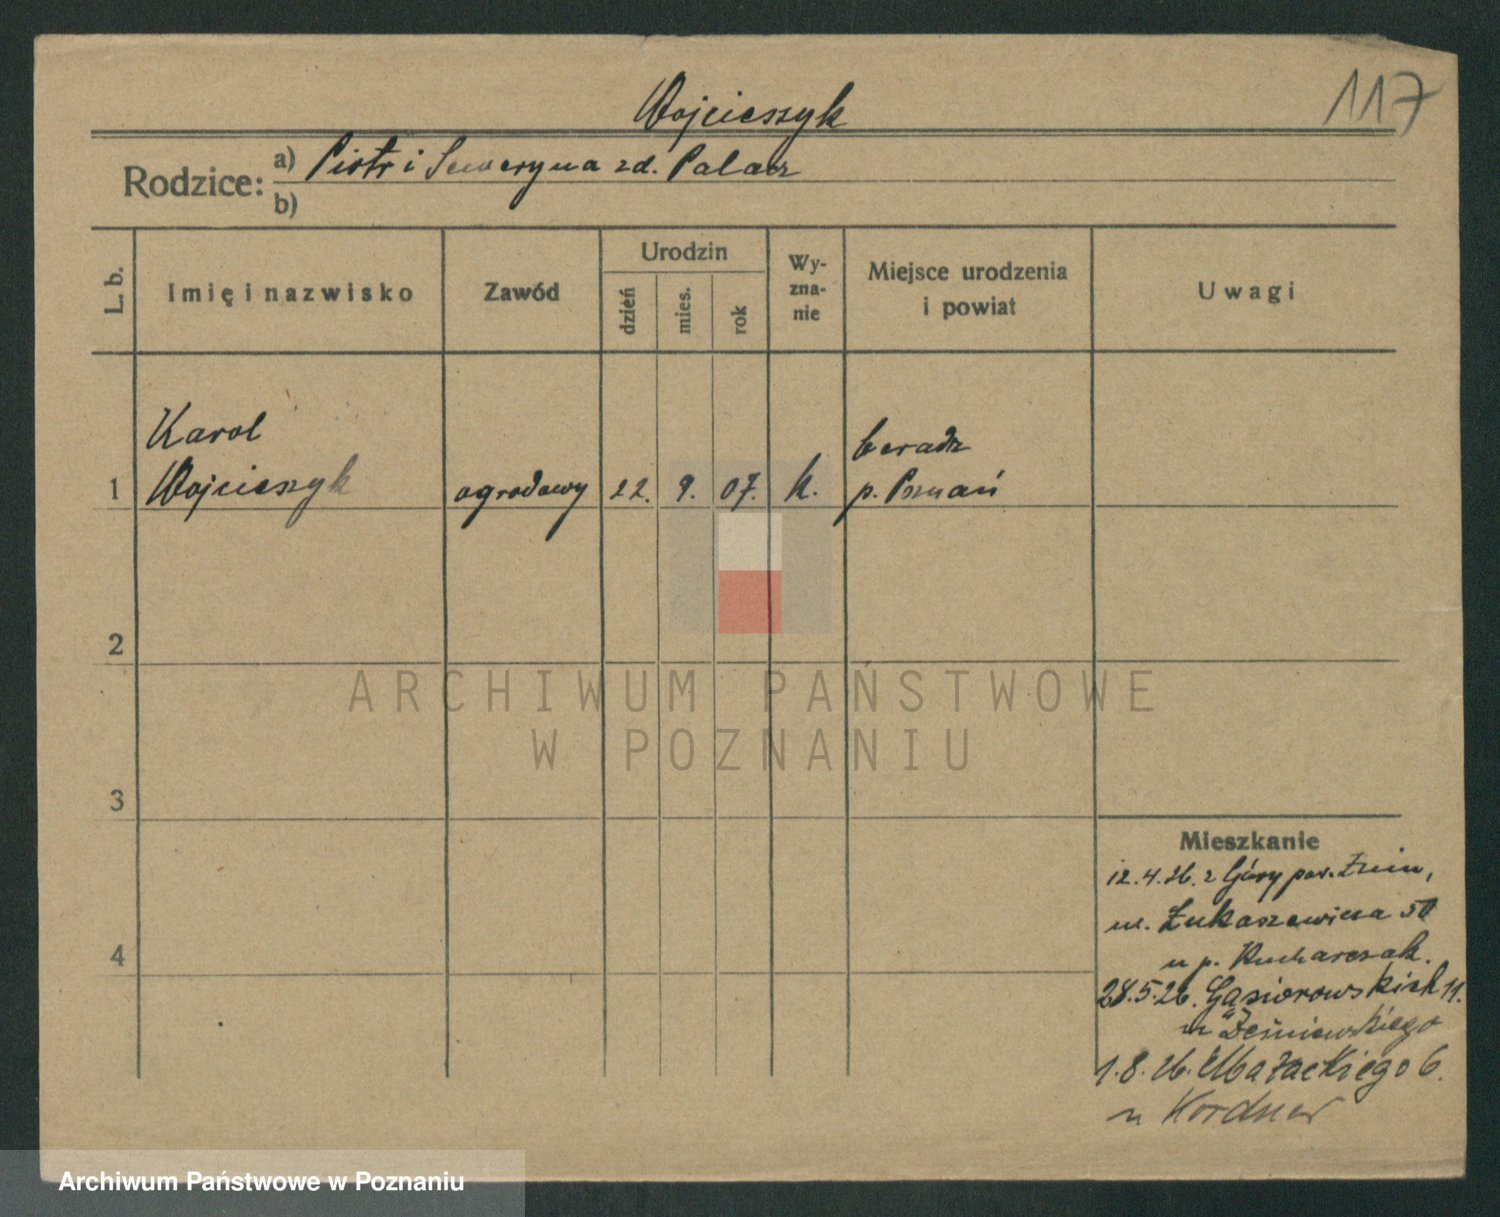 117
Wojcieszyk
Rodzice: a) Piotr i Seweryna zd. Palacz
b)
L. b. Imię i nazwisko Zawód Urodzin dzień mies. rok Wy-zna-nie Miejsce urodzenia i powiat Uwagi
Karol
1 Wojcieszyk ogrodowy 22. 9. 07. k.
p. Poznań
2
3
4
Mieszkanie
12.4.26. z Góry pow. Żnin,
ul. Łukaszewicza 50
u p. Kucharczak.
28.5.26. Gąsiorowskich 11.
u
1.8.26. Małeckiego 6.
u Kordner
ARCHIWUM PAŃSTWOWE
W POZNANIU
Archiwum Państwowe w Poznaniu